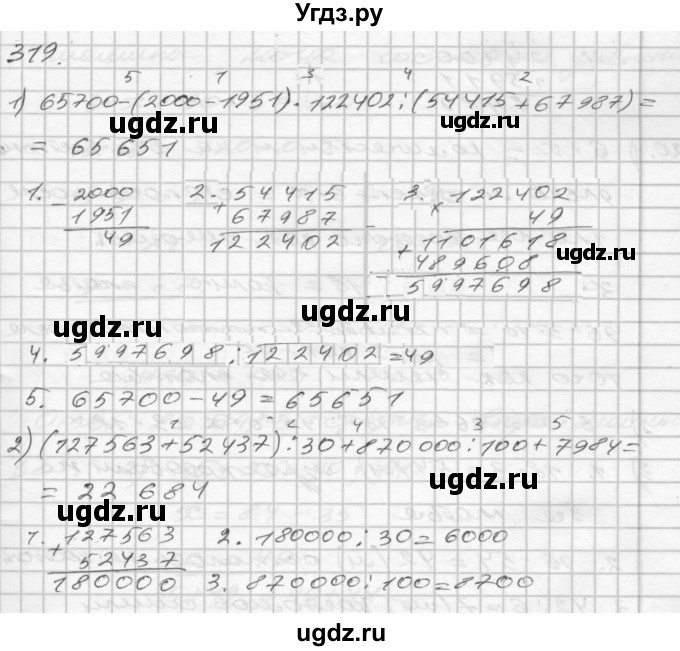 Угдз.ру
319.
5 1 3 4 2
1) 65700-(2000-1951)·122402:(54415+67987)=
ugdz.ru ugdz.ru
= 65651
1. 2000 2. 54415 3. 122402
- 1951 + 67987 × 49
49 122402 1101618
ugdz.ru
+ 489608
5997698
ugdz.ru ugdz.ru
4. 5997698:122402=49
5. 65700-49=65651
1 2 4 3 5
2) (127563+52437):30+870000:100+7984=
ugdz.ru ugdz.ru
= 22 684
ugdz.ru
1. 127563 2. 180000:30=6000
+ 52437
180000 3. 870000:100=8700
ugdz.ru
ugdz.ru